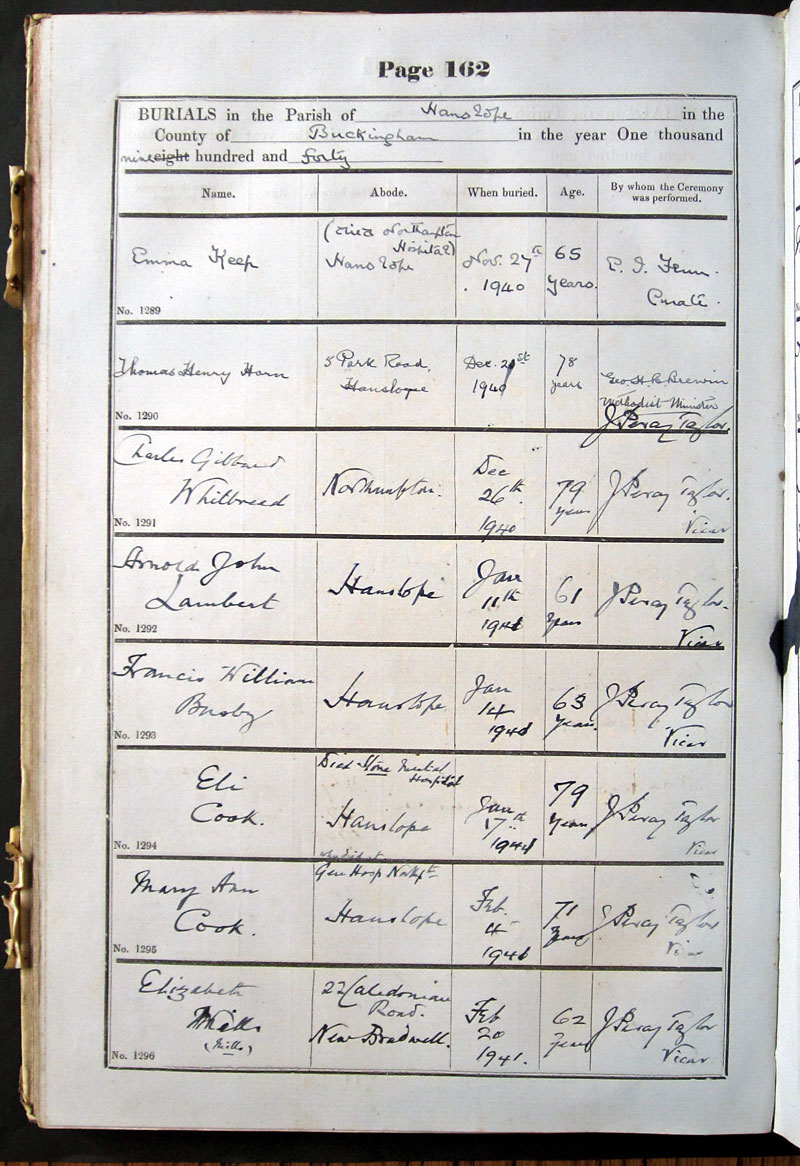 Page 162
BURIALS in the Parish of Hanslope in the
County of Buckingham in the year One thousand
nine eight hundred and forty
Name. Abode. When buried. Age. By whom the Ceremony was performed.
(died Northampton
Hospital)
Emma Keep Hanslope Nov. 27th 1940 65 years. Fenn.
Curate.
No. 1289
Thomas Henry Horn 5 Park Road, Hanslope Dec. 21st 1940 78 years Geo. H. B. Brewin
Methodist Minister
J Percy Taylor.
No. 1290
Charles Gibbard
Whitbread Northampton. Dec 26th 1940 79 years J Percy Taylor.
Vicar
No. 1291
Arnold John
Lambert Hanslope Jan 11th 1941 61 years J Percy Taylor.
Vicar
No. 1292
Francis William
Busby Hanslope Jan 14 1941 63 years. J Percy Taylor
Vicar
No. 1293
Died Stone Mental
Hospital
Eli
Cook. Hanslope Jan 17th 1941 79 years J Percy Taylor
Vicar
No. 1294
Gen Hosp Northptn
Mary Ann
Cook. Hanslope Feb. 4 1941 71 years J Percy Taylor
Vicar
No. 1295
Elizabeth
Mills
(Mills) 22 Caledonian
Road.
New Bradwell. Feb 20 1941. 62 years J Percy Taylor
Vicar
No. 1296